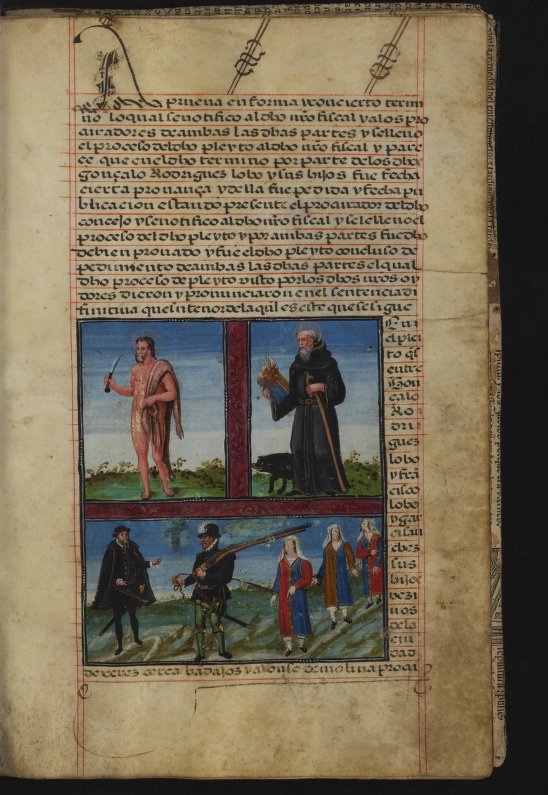 A prueva en forma y concierto termi
no lo qual se notifico al dho nro fiscal y a los pro
curadores de ambas las dhas partes y se lleuo
el proceso del dho pleyto al dho nro fiscal y pare
ce que en el dho termino por parte de los dhos
gonçalo Rodriguez lobo y sus hijos fue fecha
cierta prouança y della fue pedida y fecha pu
blicacion estando presente el procurador del dho
concejo y se notifico al dho nro fiscal y se lleuo el
proceso del dho pleyto y por ambas partes fue dho
de bien prouado y fue el dho pleyto concluso de
pedimiento de ambas las dhas partes el qual
dho proceso de pleyto visto por los dhos nros oy
dores dieron y pronunciaron en el sentencia di
finitiua que el tenor de la qual es este que se sigue
En
el plei
to q es
entre
Gon
calo
Ro
dri
guez
lobo
y frā
cisco
lobo
y gar
ci san
chez
sus
hijos
vezi
nos
de la
ciu
dad
de xerez cerca badajoz y alonso de molina procu